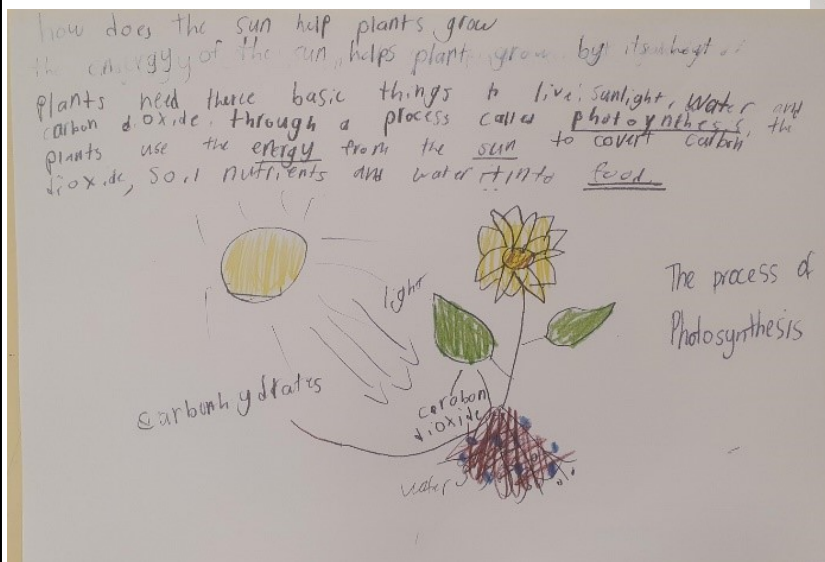 how does the sun help plants grow
the enyrgy of the sun helps plant grow by its heat
Plants need there basic things to live: sunlight, Water and
carbon dioxide. through a process called photoynthesis, the
plants use the energy from the sun to covert carbon
dioxide, soil nutrients and water it into food
light
The process of
Photosynthesis
carbonhydrates
carobon
dioxide
water